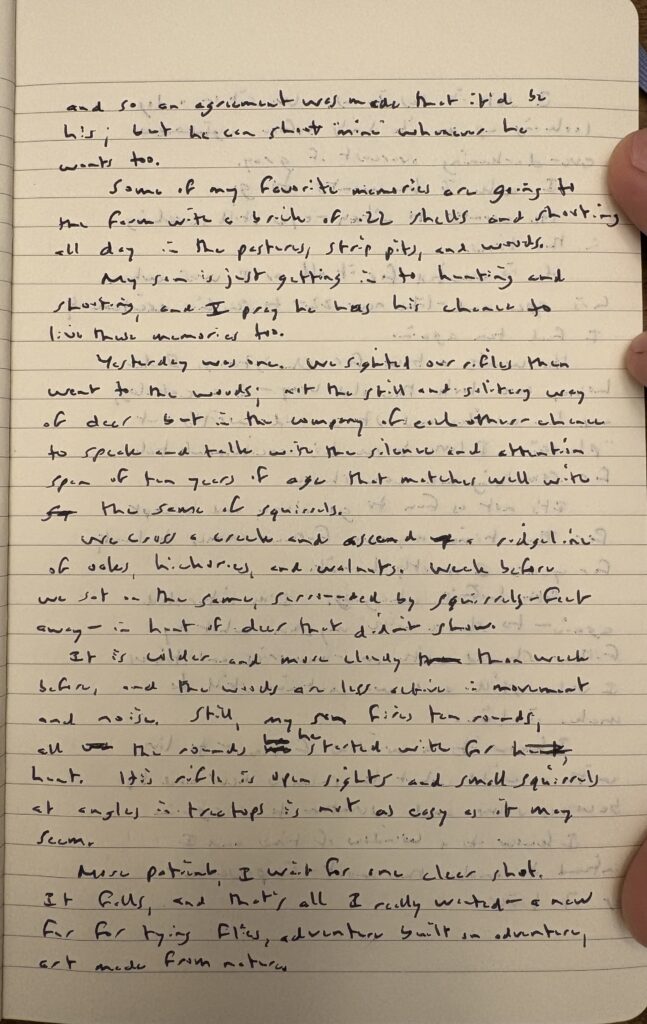 and so an agreement was made that it'd be
his; but he can shoot "mine" whenever he
wants too.
Some of my favorite memories are going to
the farm with a brick of .22 shells and shooting
all day in the pastures, strip pits, and woods.
My son is just getting in to hunting and
shooting, and I pray he has his chance to
live these memories too.
Yesterday was one. We sighted our rifles then
went to the woods; not the still and solitary way
of deer but in the company of each other - chance
to speak and talk with the silence and attention
span of ten years of age that matches well with
the same of squirrels.
We cross a creek and ascend a ridgeline
of oaks, hickories, and walnuts. Week before
we sat on the same, surrounded by squirrels - feet
away - in hunt of deer that didn't show.
It is colder and more cloudy than week
before, and the woods are less active in movement
and noise. Still, my son fires ten rounds,
all the rounds he started with for
hunt. His rifle is open sights and small squirrels
at angles in treetops is not as easy as it may
seem.
More patient, I wait for one clear shot.
It falls, and that's all I really wanted - a new
fur for tying flies, adventure built on adventure,
art made from nature.